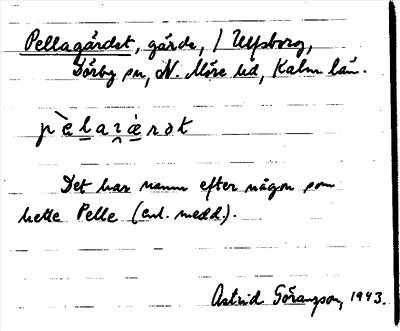 Pellagärdet, gärde, / Ulfsborg,
Dörby sn, N. Möre hd, Kalm. län.
Det har namn efter någon som
hette Pelle (enl. medd.).
Astrid Göransson, 1943.